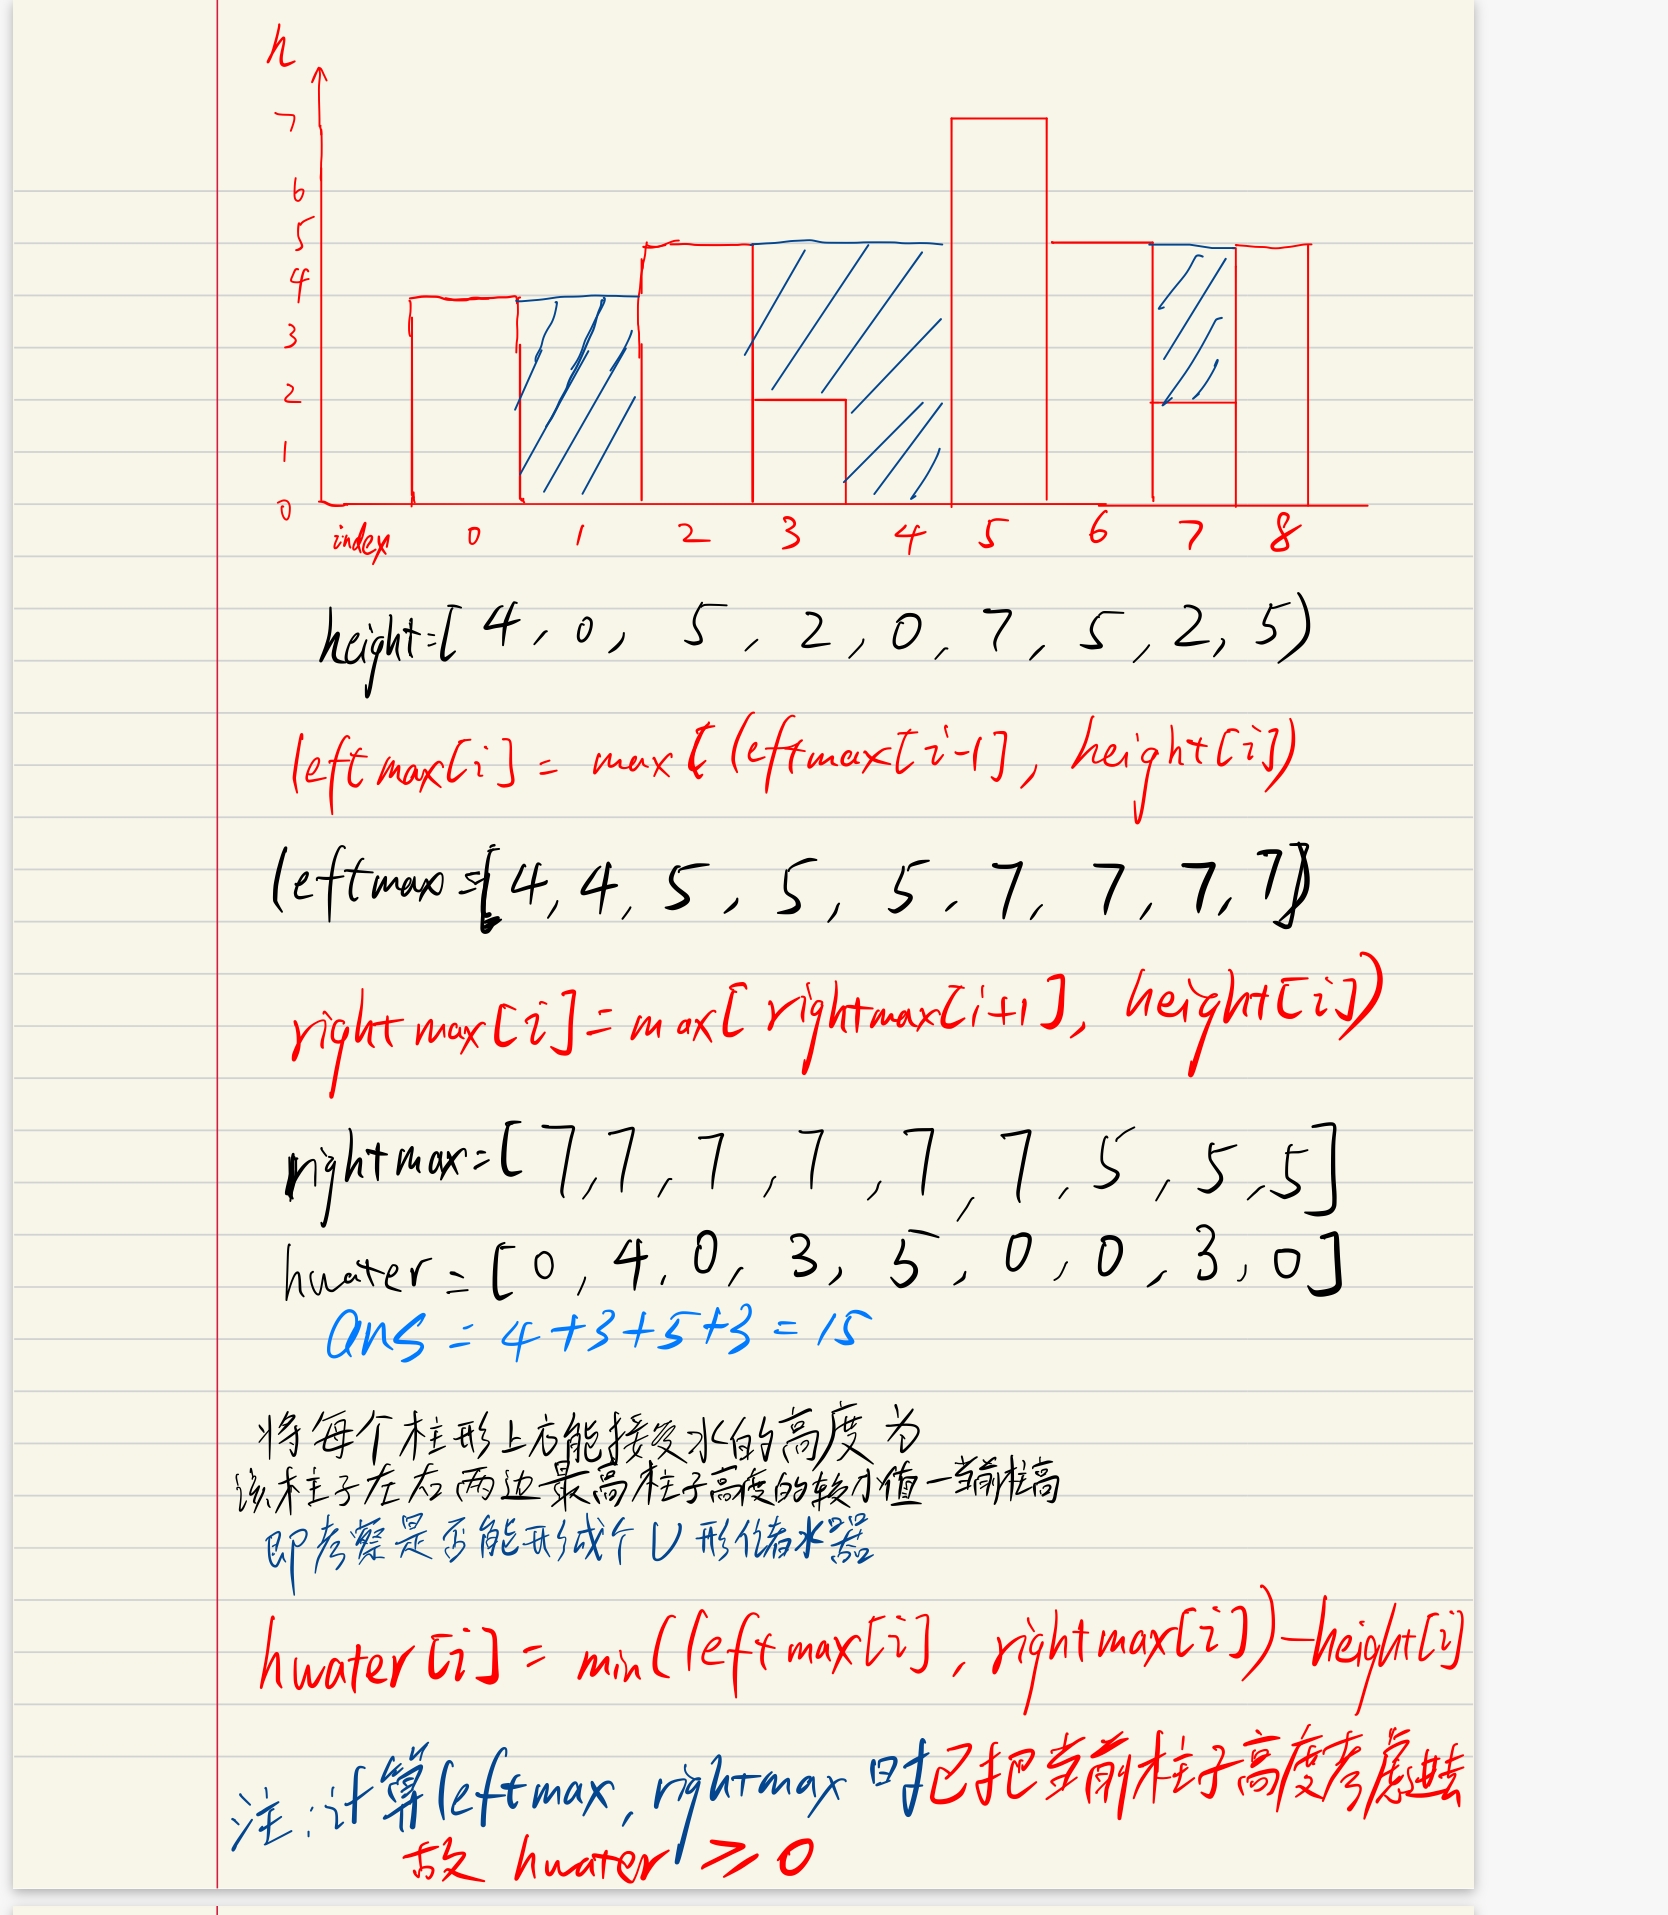 h
7
6
5
4
3
2
1
0
index 0 1 2 3 4 5 6 7 8
height=[4, 0, 5, 2, 0, 7, 5, 2, 5)
leftmax[i] = max[(leftmax[i-1], height[i])
leftmax=[4,4,5,5,5,7,7,7,7])
rightmax[i]=max[rightmax[i+1], height[i])
rightmax=[7,7,7,7,7,7,5,5,5]
hwater=[0,4,0,3,5,0,0,3,0]
ans = 4+3+5+3=15
将每个柱形上方能接受水的高度为
该柱子左右两边最高柱子高度的较小值-当前柱高
即考察是否能形成个U形储水器
hwater[i] = min(leftmax[i], rightmax[i])-height[i]
注:计算leftmax,rightmax时已把当前柱子高度考虑进去
故 hwater ≥0